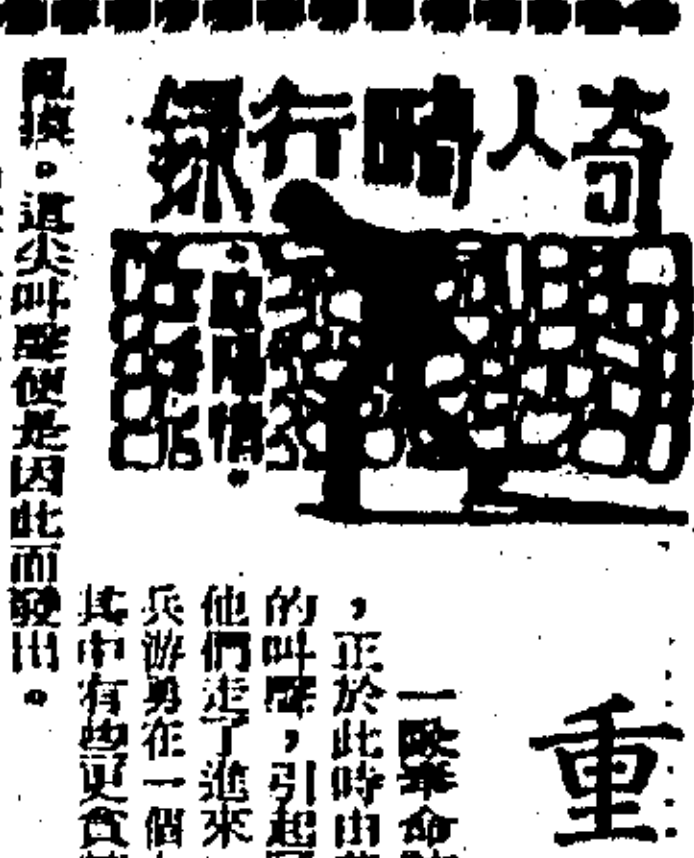 奇人畸行錄
重
一隊革命
，正於此時由
的叫聲，引起
他們走了進來
兵游勇在一個
其中有些更貪
亂摸。這尖叫聲便是因此而發出。